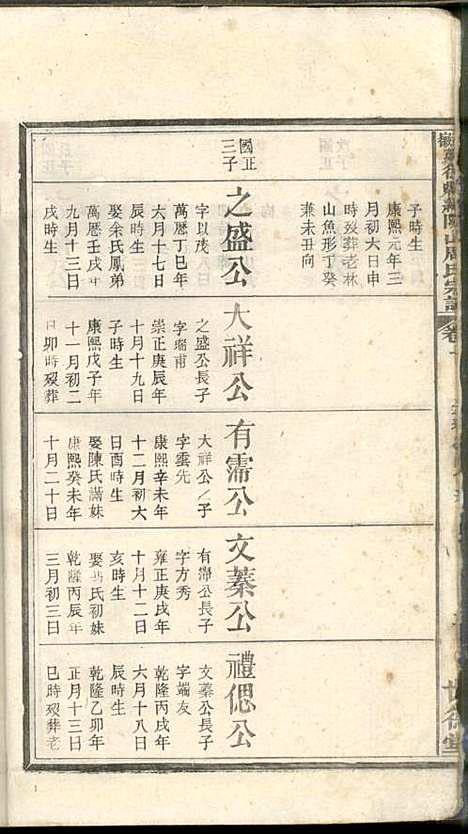 子時生
康熙元年三
月初六日申
時歿葬老林
山魚形丁癸
兼未丑向
國正
三子
之盛公
字以茂
萬曆丁巳年
六月十七日
辰時生
娶余氏鳳弟
萬曆壬戌年
九月十三日
戌時生
大祥公
之盛公長子
字瑞甫
崇正庚辰年
十月十九日
子時生
康熙戊子年
十一月初二
日卯時歿葬
有霈公
大祥公 子
字雲先
康熙辛未年
十二月初六
日酉時生
娶陳氏滿妹
康熙癸未年
十月二十日
文蓁公
有霈公長子
字方秀
雍正庚戌年
十月十二日
亥時生
娶 氏初妹
乾隆丙辰年
三月初三日
禮偲公
文蓁公長子
字端友
乾隆丙戌年
六月十八日
辰時生
乾隆乙卯年
正月十三日
巳時歿葬老
周氏宗譜
卷